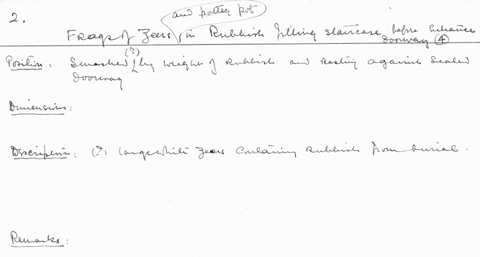 2.
and pottery pot
Frags of Zeers, in Rubbish filling staircase before Entrance
doorway ④
Position: Smashed (?) by weight of Rubbish and resting against Sealed
Doorway
Dimensions:
Description: (?) large white Zeers containing Rubbish from burial.
Remarks: